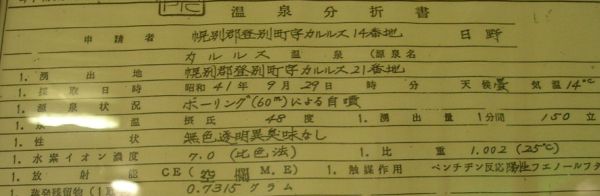 温泉分析書
申請者 幌別郡登別町字カルルス14番地 日野
カルルス 温泉 (源泉名
1. 湧出地 幌別郡登別町字カルルス21番地
1. 採取日時 昭和41年9月29日 時 分 天候 曇 気温 14°C
1. 源泉状況 ボーリング(60m)による自噴
1. 泉温 摂氏 48度 1. 湧出量 1分間 150立
1. 性状 無色透明異臭味なし
1. 水素イオン濃度 7.0 (比色法) 1. 比重 1.002 (25°C)
1. 放射能 CE( M.E.) 1. 触媒作用 ベンチヂン反応陽性フエノールフタ
1. 蒸発残留物(1 0.7315グラム